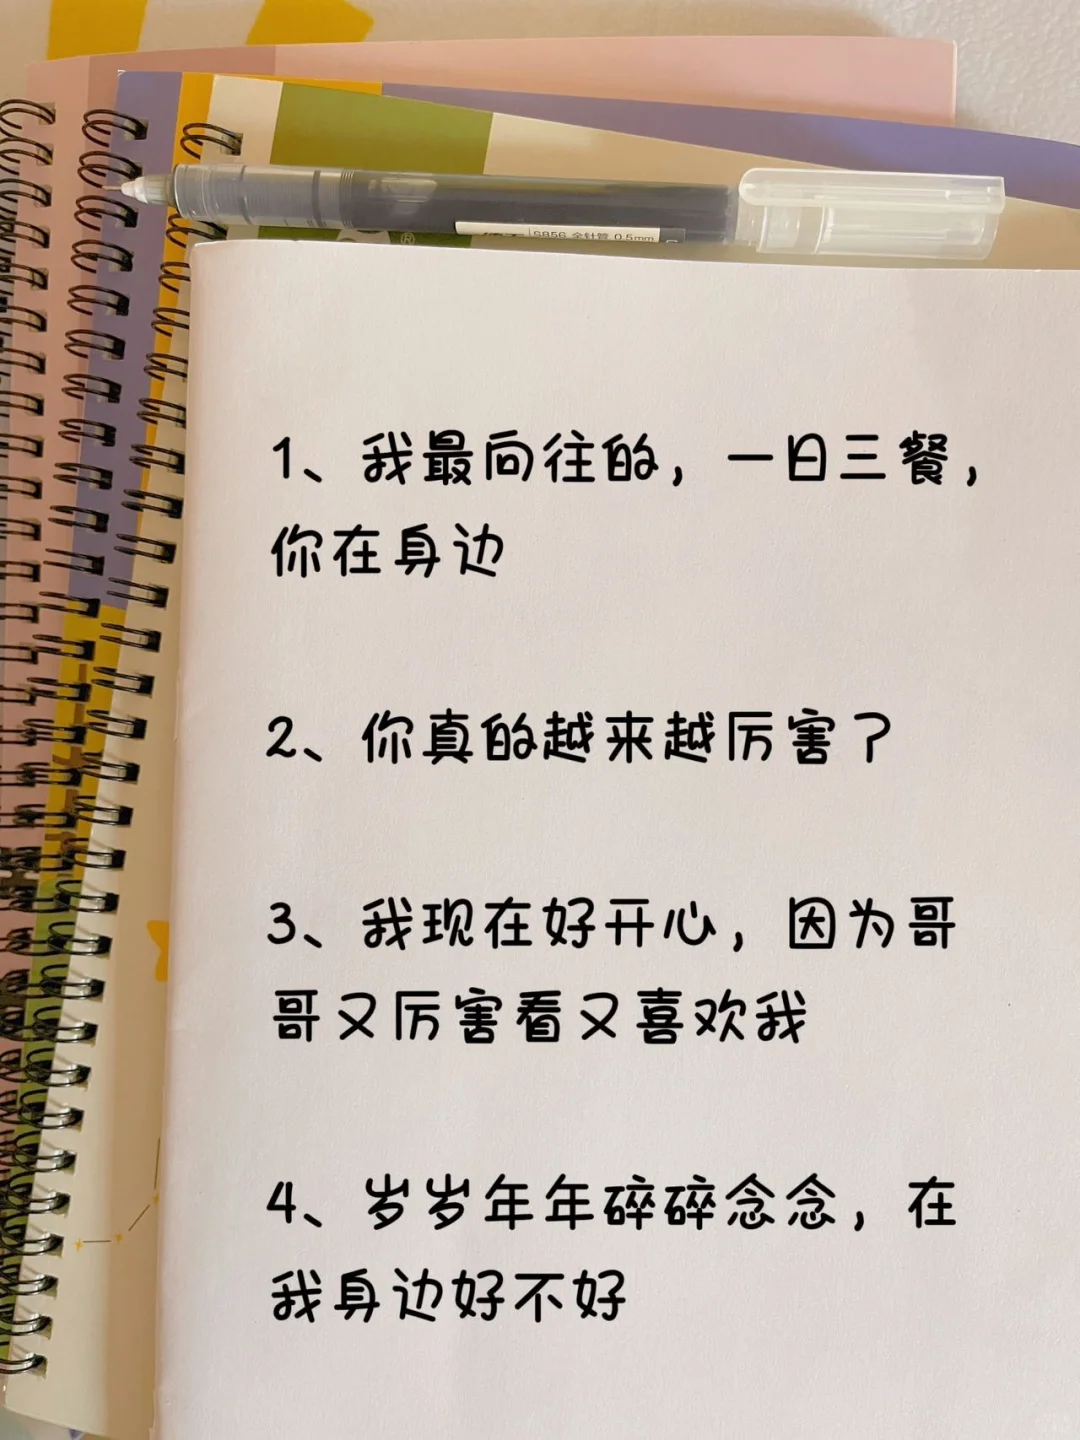 S856 全针管 0.5mm
®
1、我最向往的，一日三餐，
你在身边
2、你真的越来越厉害了
3、我现在好开心，因为哥
哥又厉害看又喜欢我
4、岁岁年年碎碎念念，在
我身边好不好